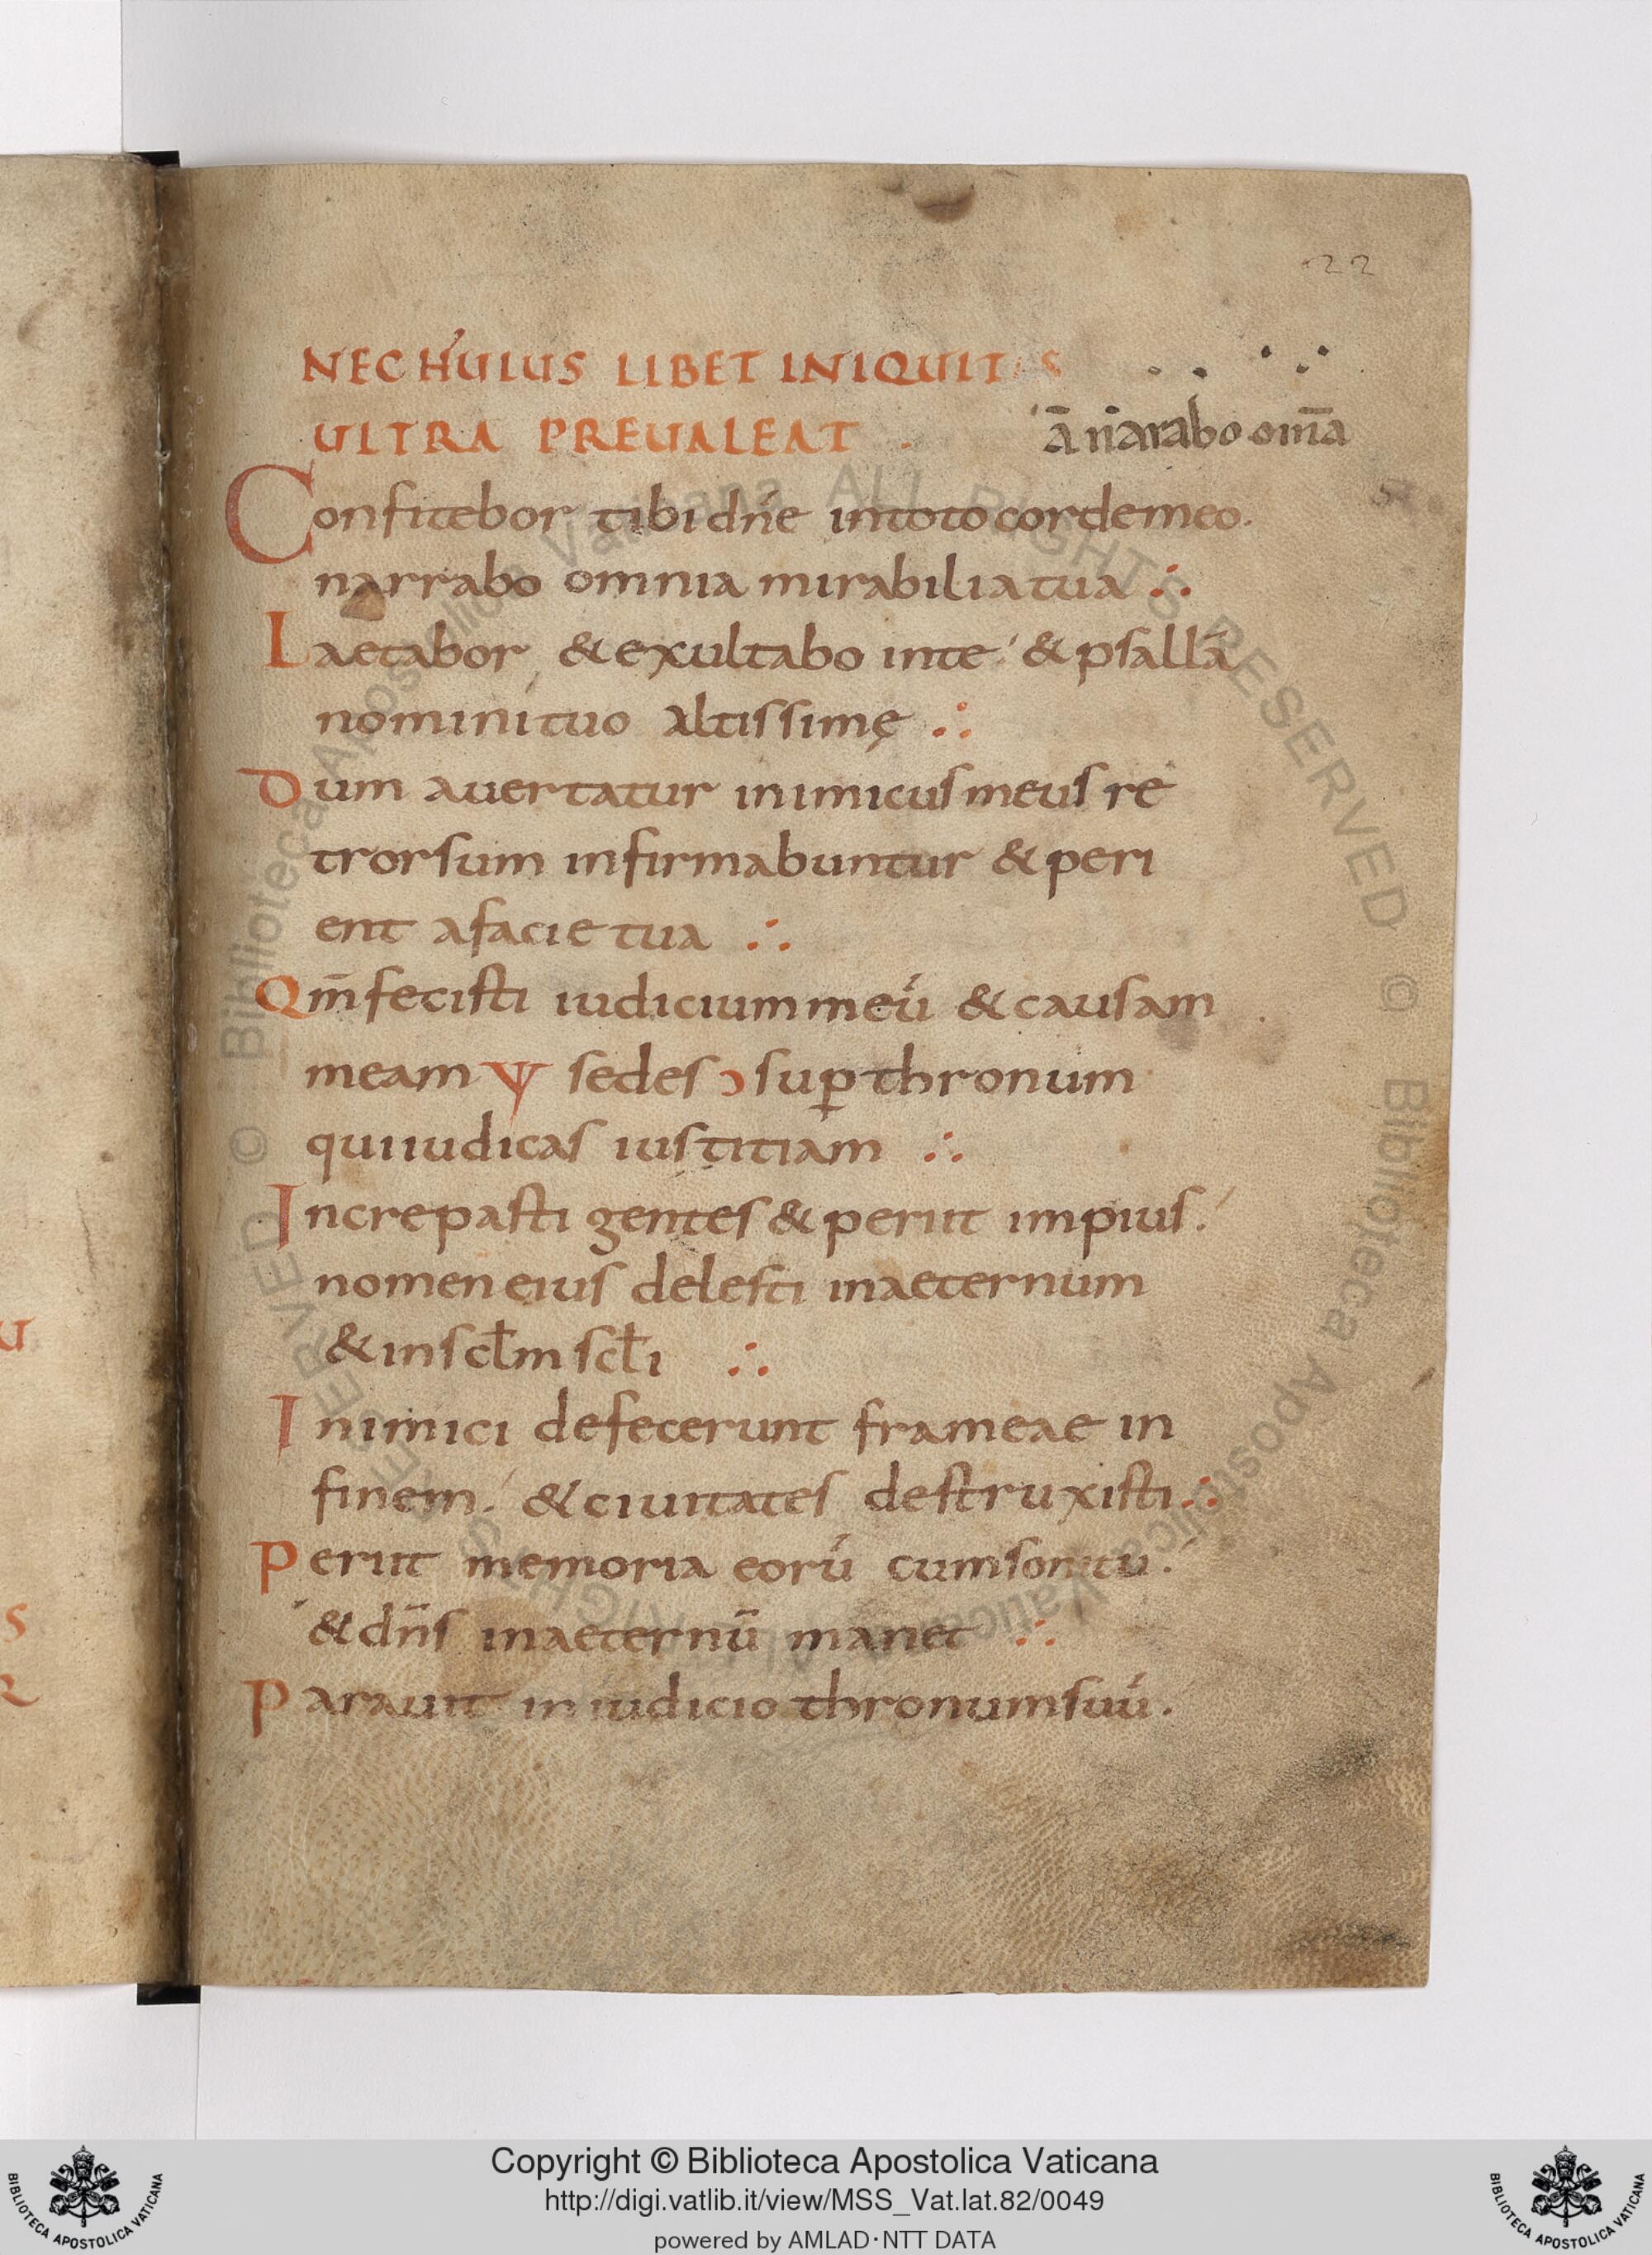 22
NEC HUIUS LIBET INIQUITAS
ULTRA PREUALEAT .
añ narabo om̄a
Confitebor tibi dn̄e intoto cordemeo.
narrabo omnia mirabilia tua ∴
Laetabor & exultabo inte & psallā
nomini tuo altissimę ∴
Dum auertatur inimicus meus re
trorsum infirmabuntur & peri
ent afacie tua ∴
Qm̄ fecisti iudicium meū & causam
meam ұ sedes ɔ sup̱ thronum
qui iudicas iustitiam ∴
Increpasti gentes & periit impius.
nomen eius delesti inaeternum
& insc̄lm sc̄li ∴
Inimici defecerunt frameae in
finem. & ciuitates destruxisti ∴
Periit memoria eorū cumsonitu.
& dn̄s inaeternū manet ∴
Parauit in iudicio thronumsuū.
U
S
R
© Biblioteca Apostolica Vaticana ALL RIGHTS RESERVED © Biblioteca Apostolica Vaticana ALL RIGHTS RESERVED
Copyright © Biblioteca Apostolica Vaticana
http://digi.vatlib.it/view/MSS_Vat.lat.82/0049
powered by AMLAD·NTT DATA
BIBLIOTECA APOSTOLICA VATICANA
BIBLIOTECA APOSTOLICA VATICANA